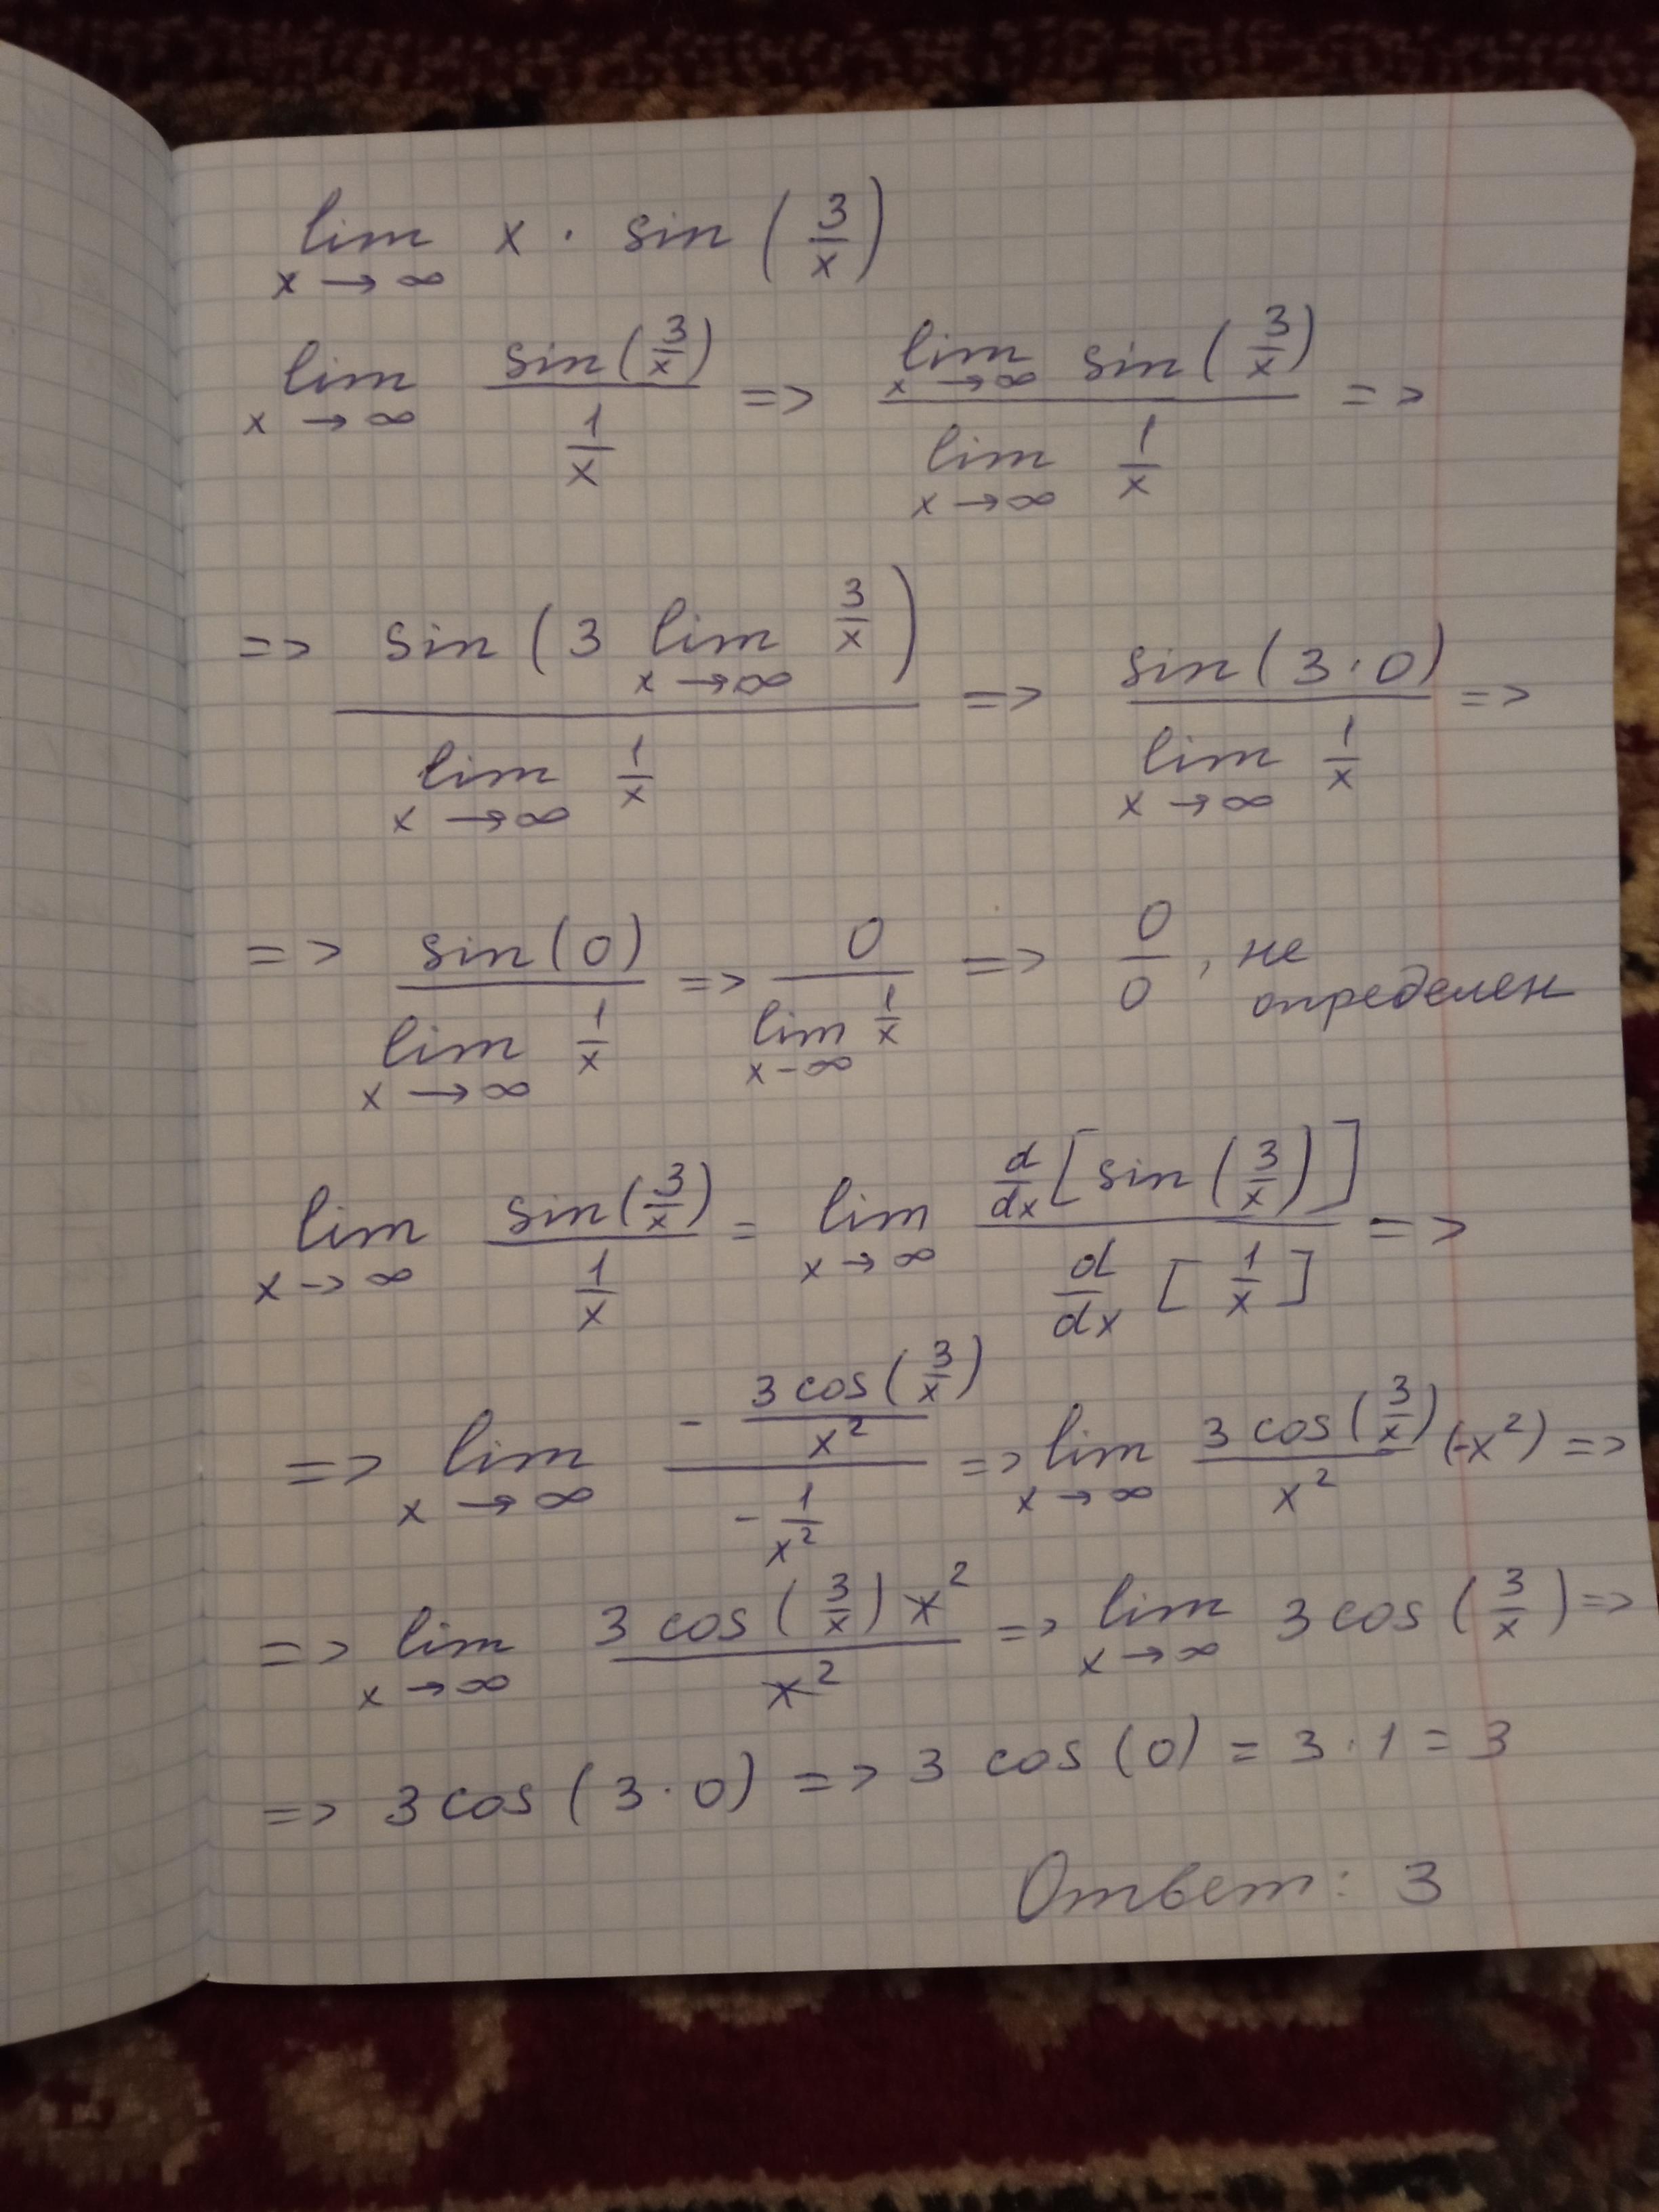 lim x→∞ x · sin (3/x)
lim x→∞ sin(3/x) / (1/x) => lim x→∞ sin (3/x) / lim x→∞ 1/x =>
=> sin (3 lim x→∞ 3/x) / lim x→∞ 1/x => sin (3·0) / lim x→∞ 1/x =>
=> sin (0) / lim x→∞ 1/x => 0 / lim x-∞ 1/x => 0/0, не определен
lim x→∞ sin(3/x) / (1/x) = lim x→∞ d/dx [sin (3/x)] / d/dx [1/x] =>
=> lim x→∞ (- 3 cos(3/x) / x²) / (- 1/x²) => lim x→∞ 3 cos(3/x) / x² (-x²) =>
=> lim x→∞ 3 cos (3/x) x² / x² => lim x→∞ 3 cos (3/x) =>
=> 3 cos (3·0) => 3 cos (0) = 3·1 = 3
Ответ: 3